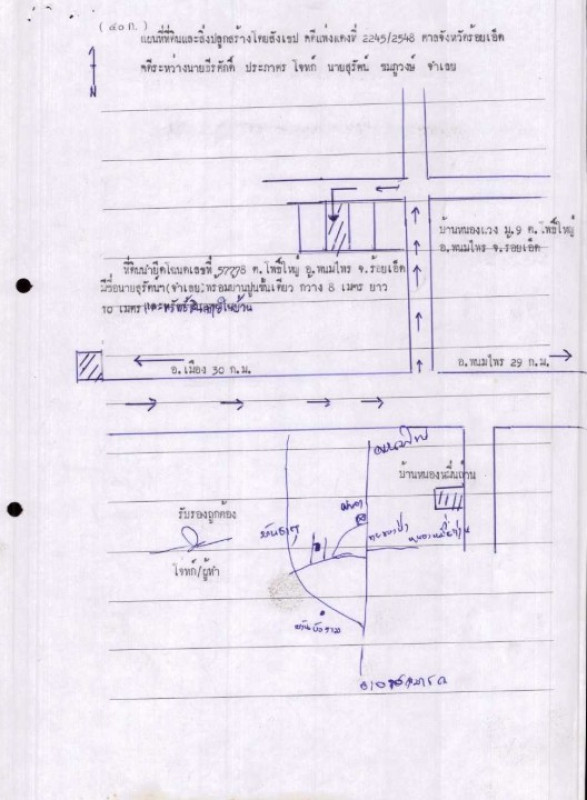 ( ๔๐ ก. )
แผนที่ที่ดินและสิ่งปลูกสร้างโดยสังเขป คดีแพ่งแดงที่ 2245/2548 ศาลจังหวัดร้อยเอ็ด
คดีระหว่างนายธีรศักดิ์ ประภาคร โจทก์ นายสุรัตน์ ชมภูวงษ์ จำเลย
N
บ้านหนองแวง ม.9 ต.โพธิ์ใหญ่
อ.พนมไพร จ.ร้อยเอ็ด
ที่ดินนำยึดโฉนดเลขที่ 57778 ต.โพธิ์ใหญ่ อ.พนมไพร จ.ร้อยเอ็ด
มีชื่อนายสุรัตน์ฯ(จำเลย)พร้อมบ้านปูนชั้นเดียว กว้าง 8 เมตร ยาว
10 เมตร
อ.เมือง 30 ก.ม.
อ.พนมไพร 29 ก.ม.
พนมไพร
บ้านหนองหมื่นถ่าน
รับรองถูกต้อง
โจทก์/ผู้นำ
อาจสามารถ